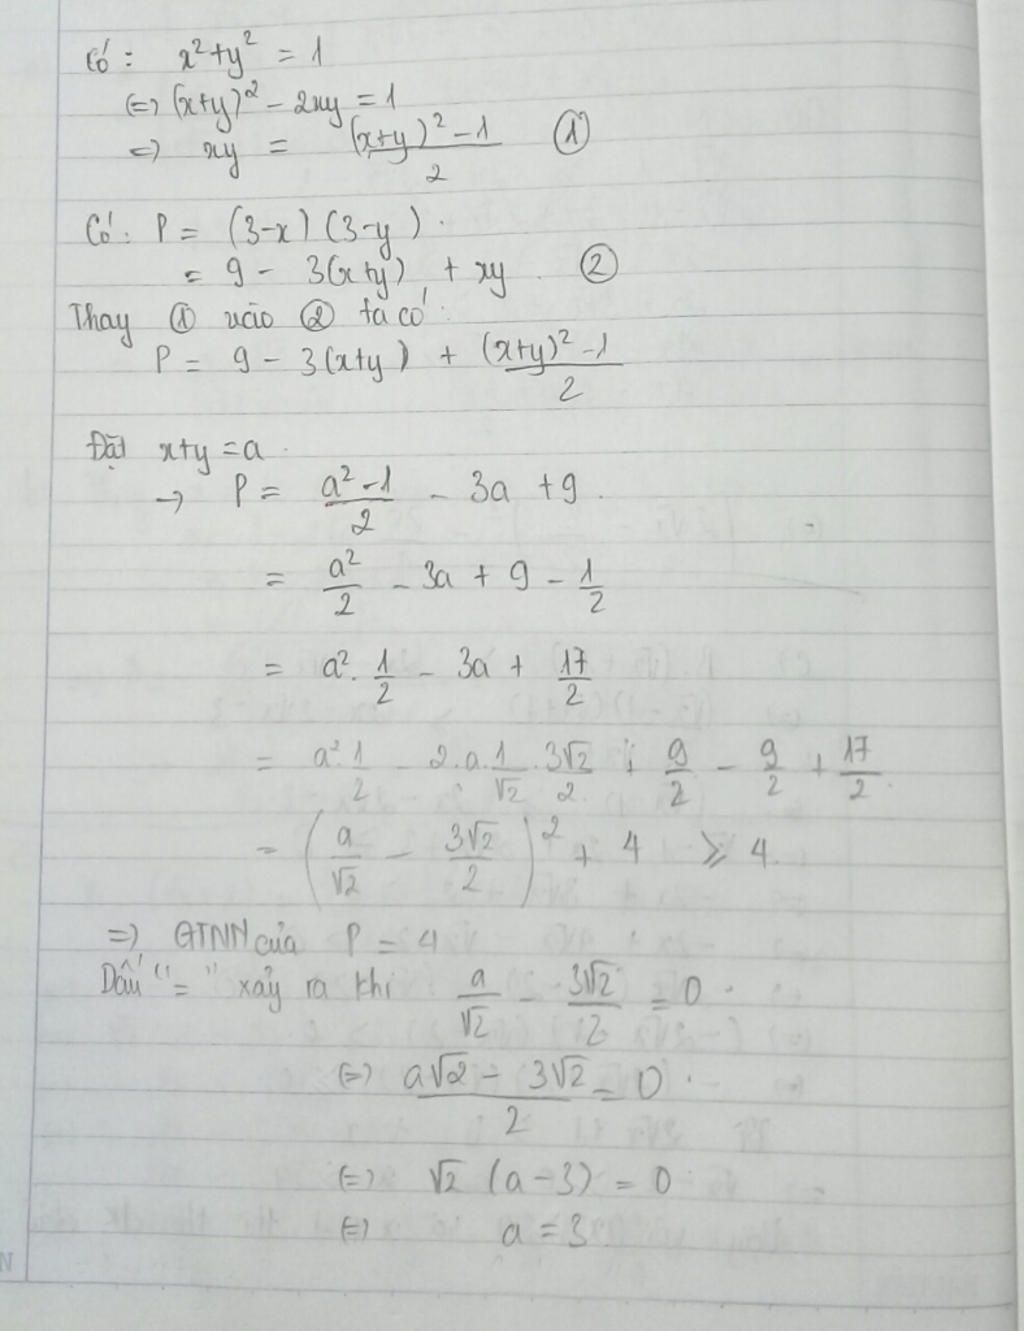 Có: x² + y² = 1
(=) (x+y)² - 2xy = 1
=) xy = (x+y)² - 1 / 2 ①
Có: P = (3-x) (3-y).
= 9 - 3(x+y) + xy. ②
Thay ① vào ② ta có:
P = 9 - 3(x+y) + (x+y)² - 1 / 2
Đặt x+y = a.
→ P = a² - 1 / 2 - 3a + 9.
= a²/2 - 3a + 9 - 1/2
= a². 1/2 - 3a + 17/2
= a². 1/2 - 2.a. 1/√2 . 3√2/2 + 9/2 - 9/2 + 17/2.
= (a/√2 - 3√2/2)² + 4 ⩾ 4.
=) GTNN của P = 4
Dấu "=" xảy ra khi a/√2 - 3√2/2 = 0.
(=) a√2 - 3√2 / 2 = 0.
(=) √2 (a-3) = 0
(=) a = 3